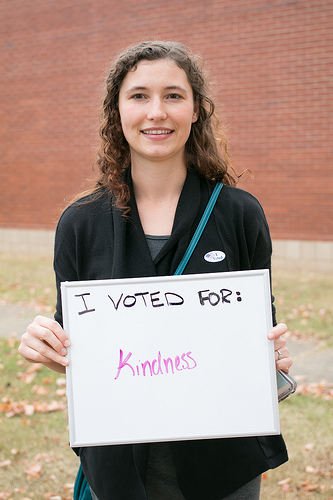 I VOTED FOR:
Kindness